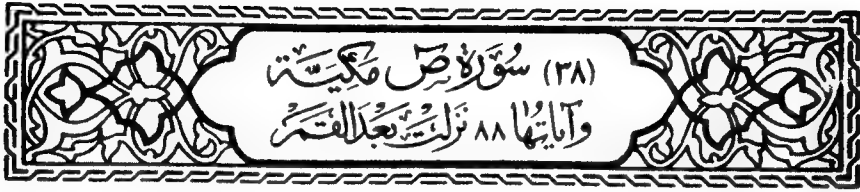 (٣٨) سُورَة صٓ مَكِيَّة
وَآيَاتُهَا ٨٨ نَزَلَتْ بَعْدَ القَمَرْ